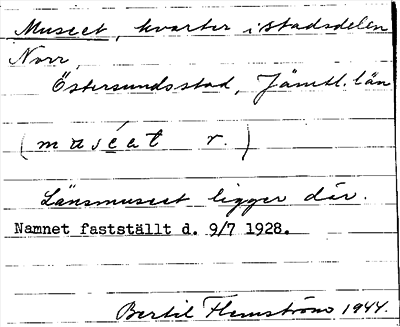 Museet, kvarter i stadsdelen
Norr,
Östersunds stad, Jämtl. län
(museet r.)
Länsmuseet ligger där.
Namnet fastställt d. 9/7 1928.
Bertil Flemström 1944.